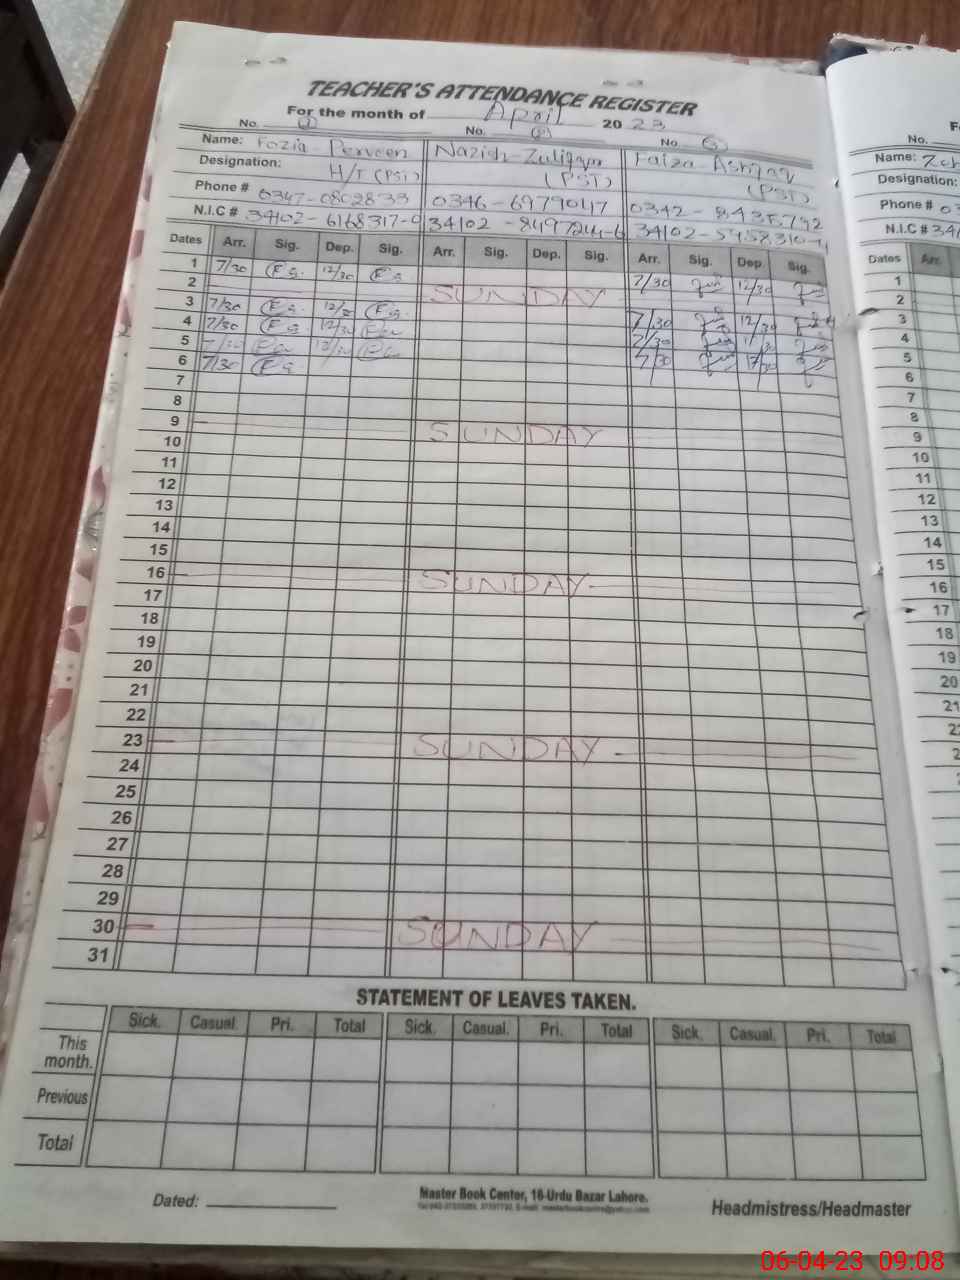 TEACHER'S ATTENDANCE REGISTER
For the month of April 20 23
No. 1 No. No.
Name: Fozia - Perveen Nazish - Faiza - Ashfaq
Designation: H/T (PST) (PST) (PST)
Phone # 0347-0802833 0346-6979047 0342-8435792
N.I.C # 34102-6168317-0 34102- 34102-
Dates Arr. Sig. Dep. Sig. Arr. Sig. Dep. Sig. Arr. Sig. Dep. Sig.
1 7/30 12/30 7/30 12/30
2 SUNDAY
3 7/30 12/30 7/30 12/30
4 7/30 12/30 7/30 30
5 7/30 12/30 7/30 12/30
6 7/30
7
8
9 SUNDAY
10
11
12
13
14
15
16 SUNDAY
17
18
19
20
21
22
23 SUNDAY
24
25
26
27
28
29
30 SUNDAY
31
STATEMENT OF LEAVES TAKEN.
Sick. Casual. Pri. Total Sick. Casual. Pri. Total Sick. Casual. Pri. Total
This month.
Previous
Total
Dated:
Master Book Center, 16-Urdu Bazar Lahore.
Headmistress/Headmaster
No.
Name:
Designation:
Phone # 03
N.I.C # 34
Dates Arr.
1
2
3
4
5
6
7
8
9
10
11
12
13
14
15
16
17
18
19
20
21
06-04-23 09:08